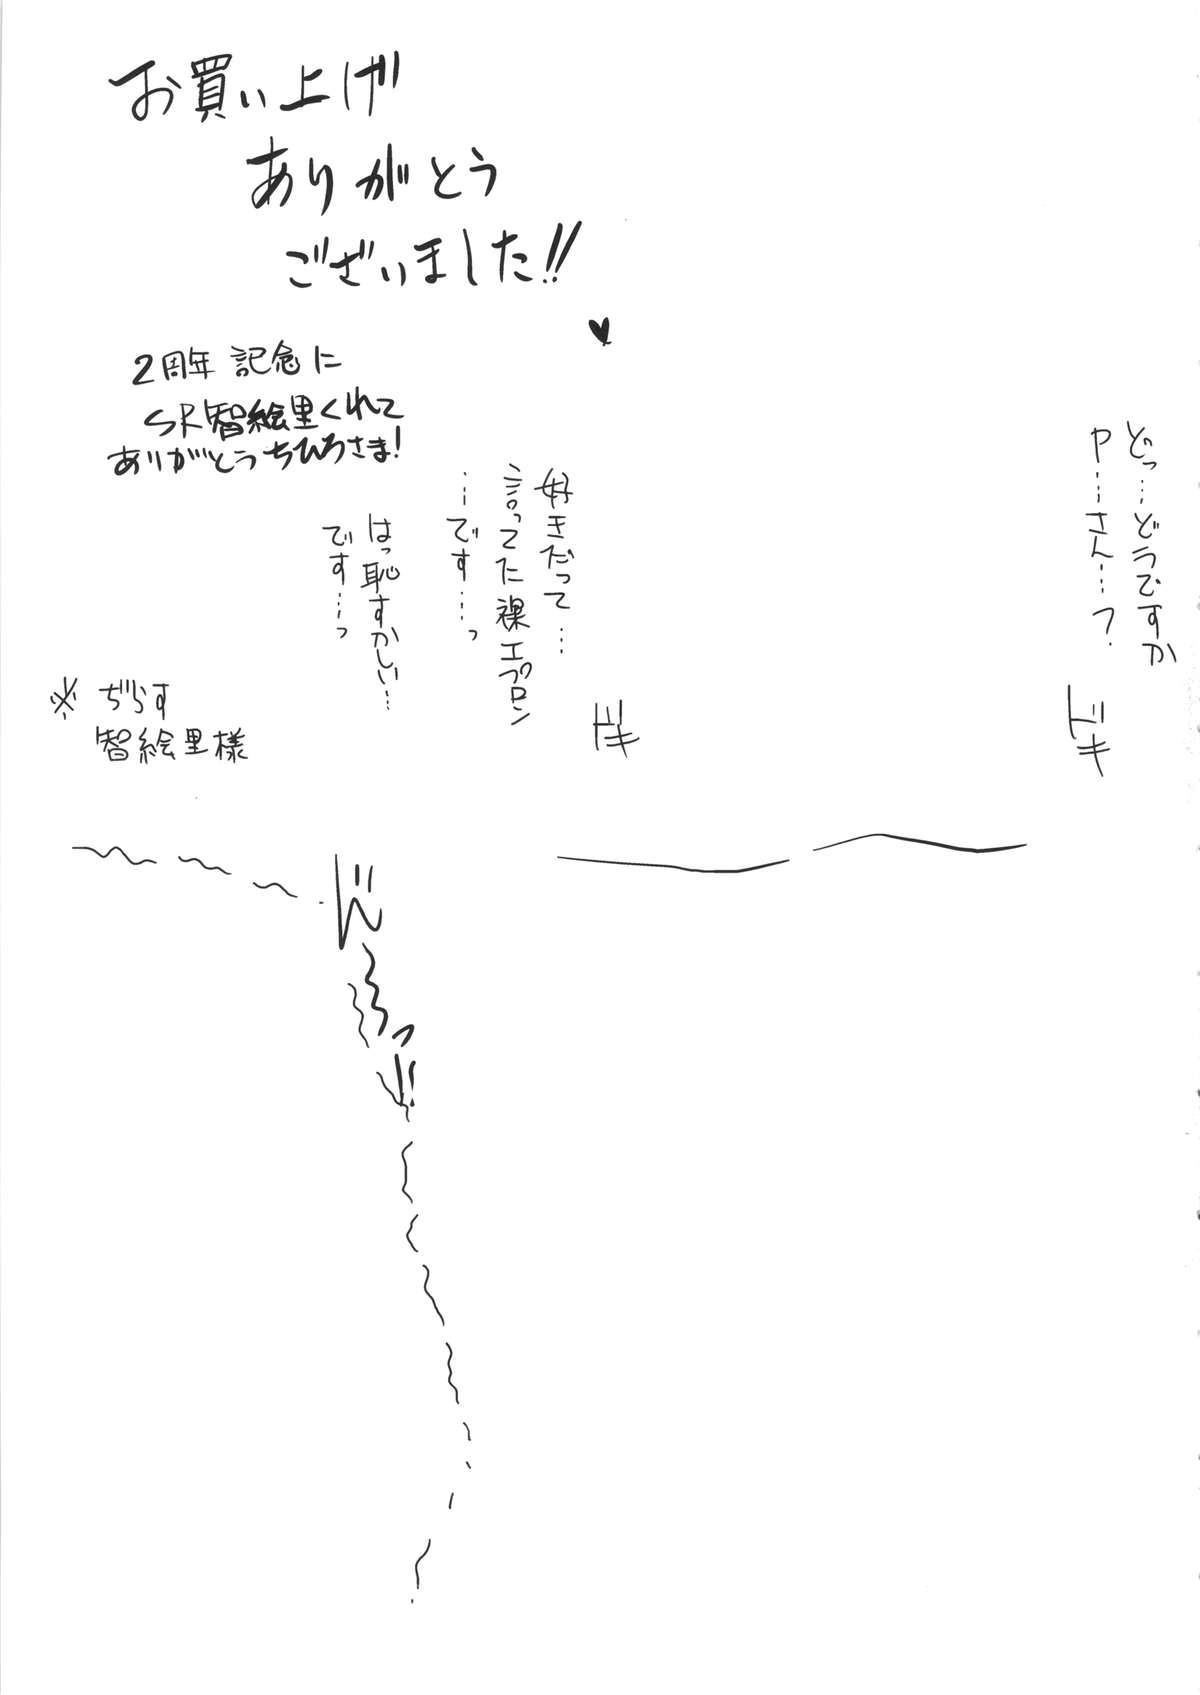 お買い上げ
ありがとう
ございました!!
♥
2周年 記念に
SR智絵里くれて
ありがとうちひろさま!
どっ…どうですか
P…さん…?
ドキ
好きだって…
言ってた裸エプロン
…です…っ
はっ恥ずかしい…
です…っ
ドキ
智絵里様